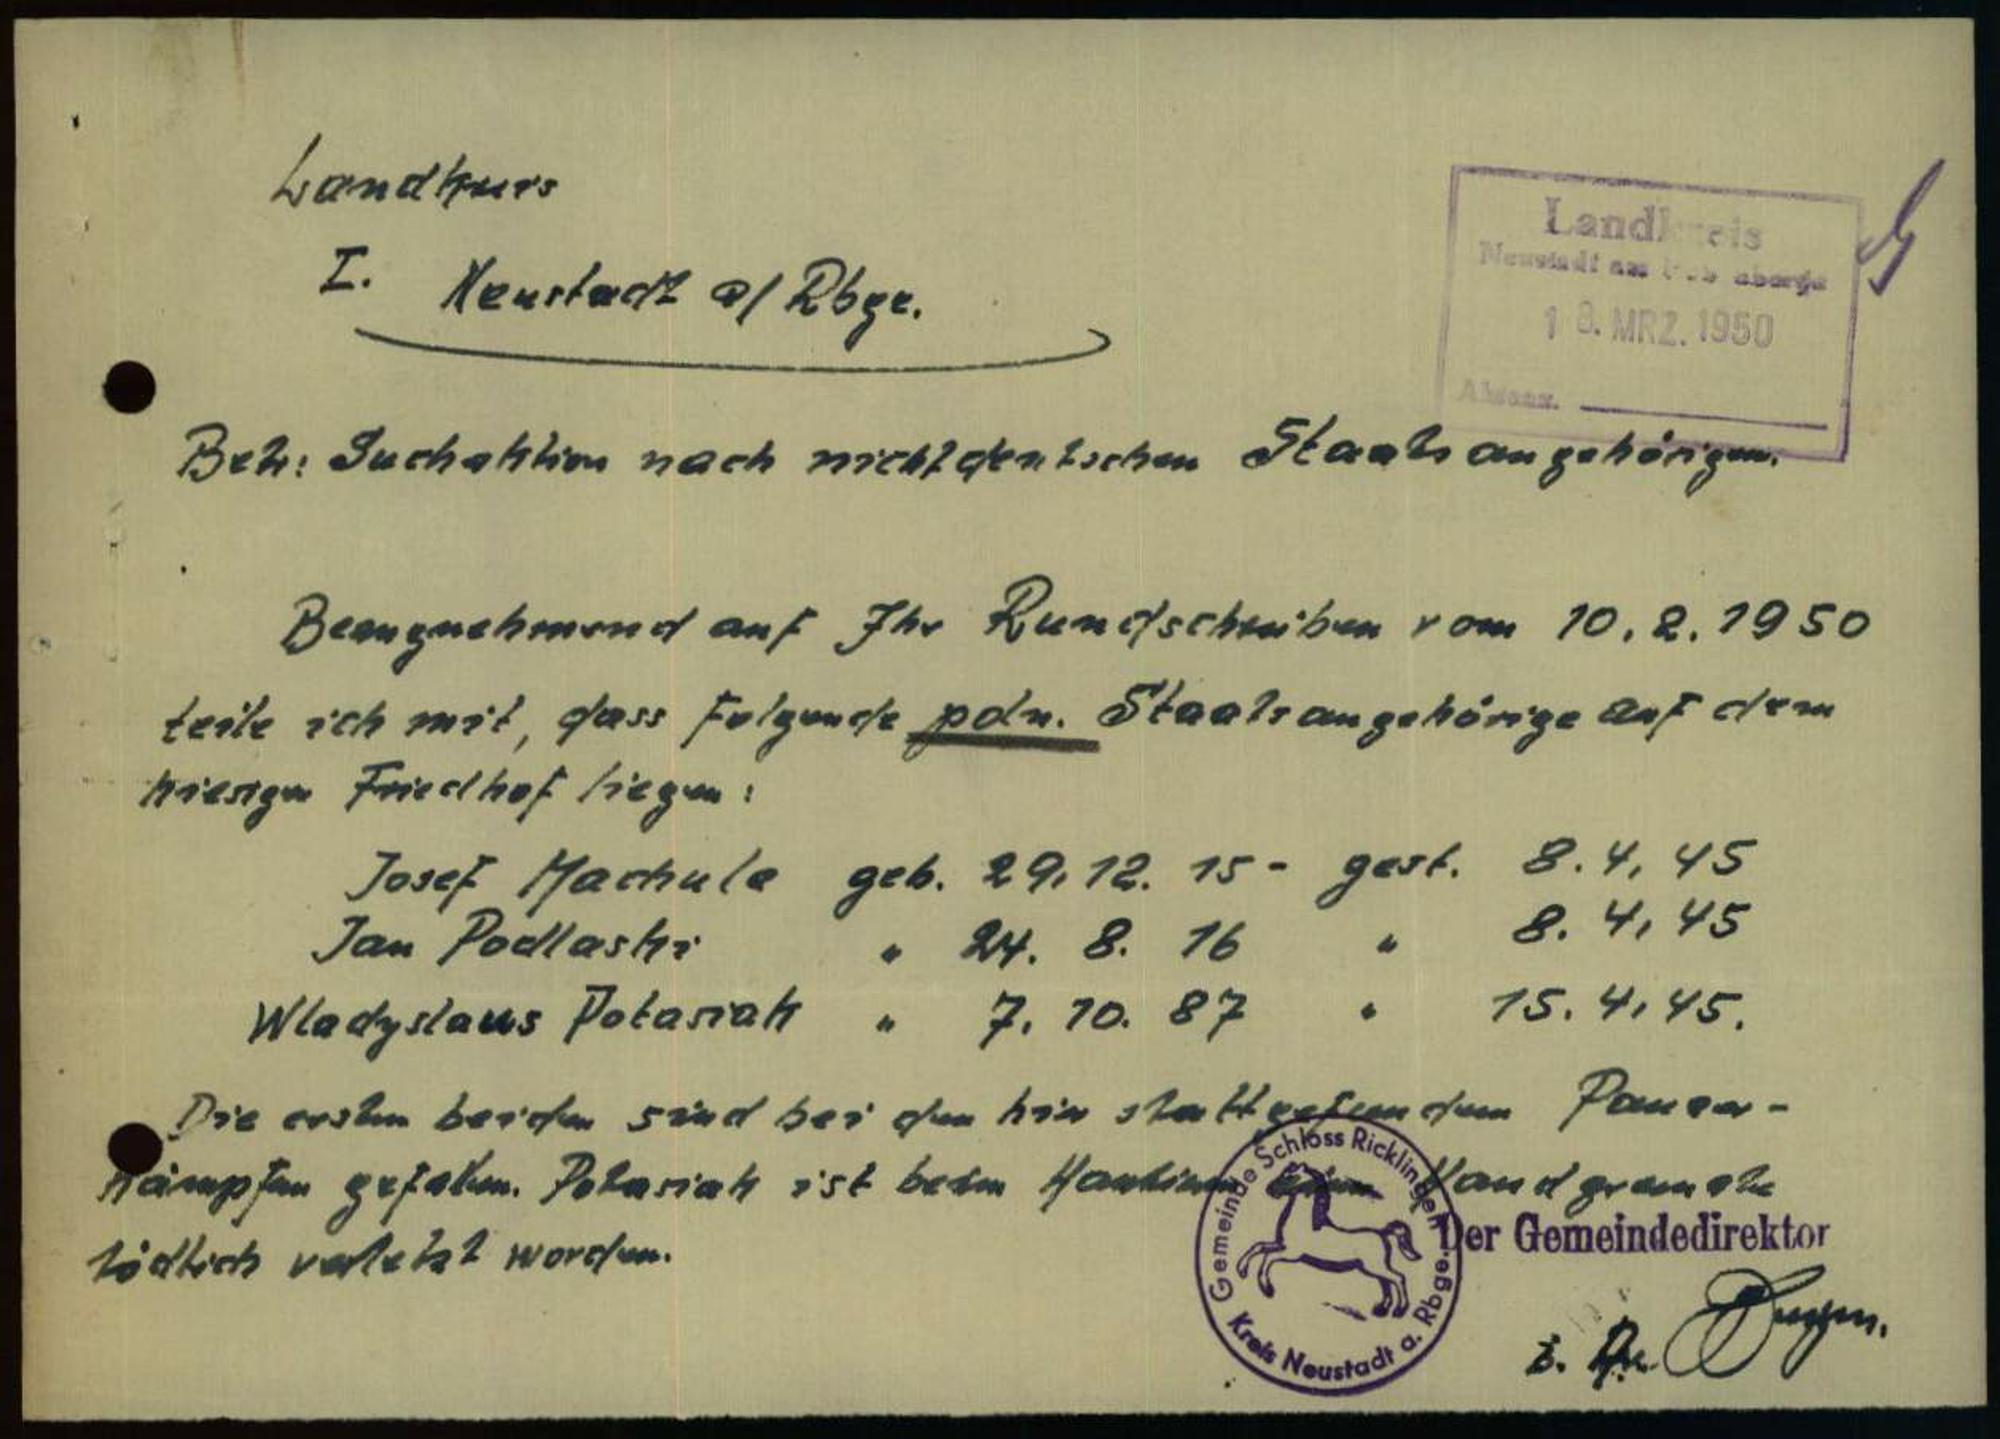 Landkreis
I. Neustadt a/Rbge.
Landkreis
Neustadt am Rübenberge
18. MRZ. 1950
Betr: Suchaktion nach nichtdeutschen Staatsangehörigen.
Bezugnehmend auf Ihr Rundschreiben vom 10.2.1950
teile ich mit, dass folgende poln. Staatsangehörige auf dem
hiesigen Friedhof liegen:
Josef Machula geb. 29.12. 15 - gest. 8.4.45
Jan Podlaski " 24. 8. 16 " 8.4.45
Wladyslaus Potasiak " 7. 10. 87 " 15.4.45.
Die ersten beiden sind bei den hier stattgefundenen Panzer-
kämpfen gefallen. Potasiak ist beim Hantieren einer Handgranate
tödlich verletzt worden.
Gemeinde Schloss Ricklingen
Kreis Neustadt a. Rbge.
Der Gemeindedirektor